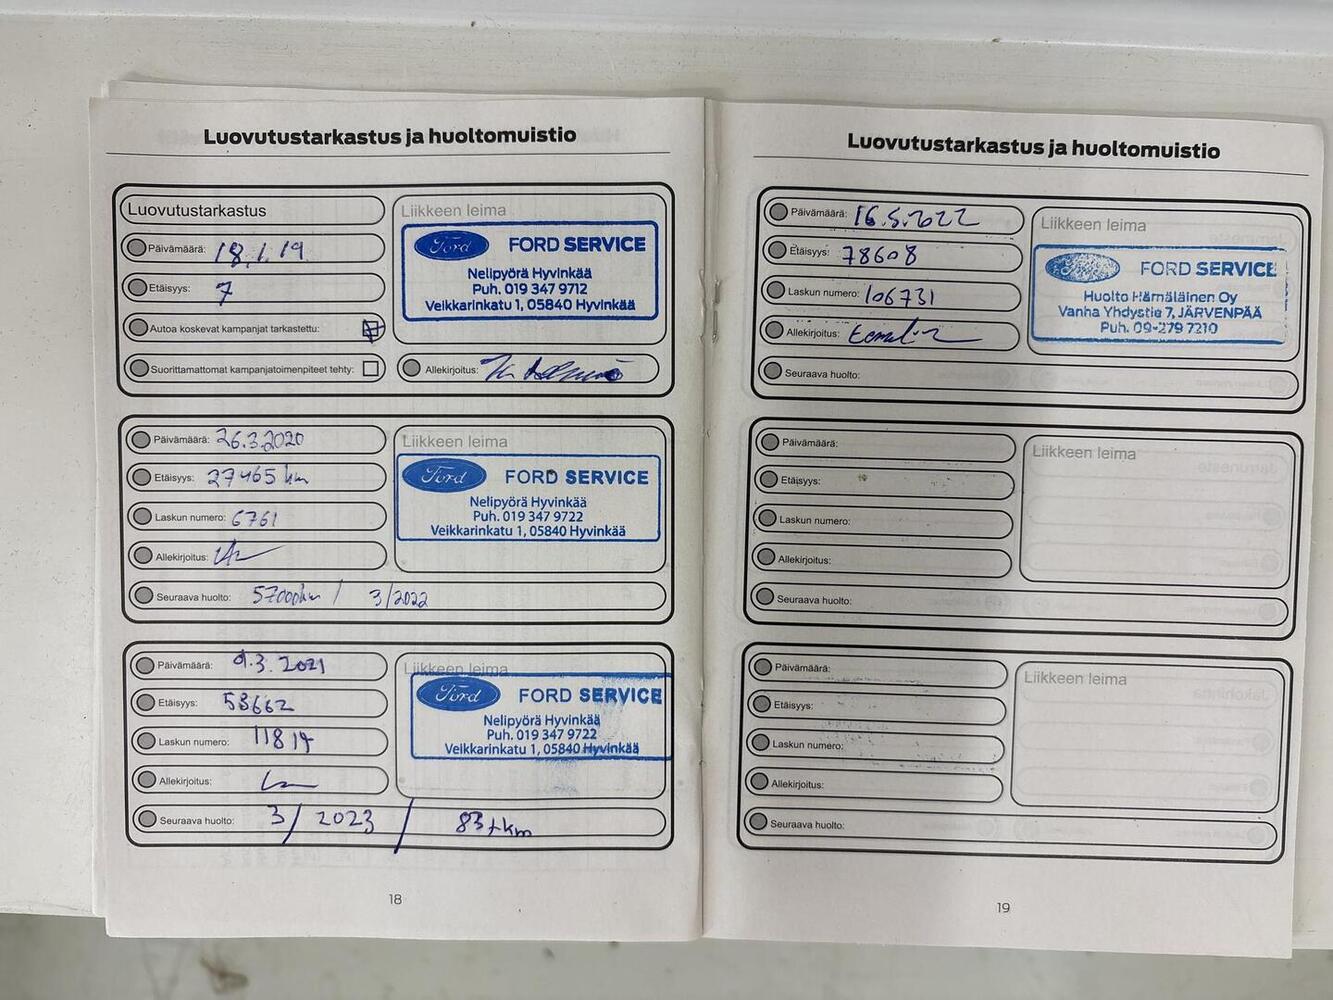 Luovutustarkastus ja huoltomuistio
Luovutustarkastus
Päivämäärä: 18.1.19
Etäisyys: 7
Autoa koskevat kampanjat tarkastettu:
Suorittamattomat kampanjatoimenpiteet tehty:
Liikkeen leima
Ford FORD SERVICE
Nelipyörä Hyvinkää
Puh. 019 347 9712
Veikkarinkatu 1, 05840 Hyvinkää
Allekirjoitus:
Päivämäärä: 26.3.2020
Etäisyys: 27465 km
Laskun numero: 6761
Allekirjoitus:
Seuraava huolto: 57000km / 3/2022
Liikkeen leima
Ford FORD SERVICE
Nelipyörä Hyvinkää
Puh. 019 347 9722
Veikkarinkatu 1, 05840 Hyvinkää
Päivämäärä: 9.3.2021
Etäisyys: 53662
Laskun numero: 11814
Allekirjoitus:
Seuraava huolto: 3/2023 / 83tkm
Liikkeen leima
Ford FORD SERVICE
Nelipyörä Hyvinkää
Puh. 019 347 9722
Veikkarinkatu 1, 05840 Hyvinkää
18
Luovutustarkastus ja huoltomuistio
Päivämäärä: 16.5.2022
Etäisyys: 78608
Laskun numero: 106731
Allekirjoitus:
Seuraava huolto:
Liikkeen leima
Ford FORD SERVICE
Huolto Hämäläinen Oy
Vanha Yhdystie 7, JÄRVENPÄÄ
Puh. 09-279 7210
Päivämäärä:
Etäisyys:
Laskun numero:
Allekirjoitus:
Seuraava huolto:
Liikkeen leima
Päivämäärä:
Etäisyys:
Laskun numero:
Allekirjoitus:
Seuraava huolto:
Liikkeen leima
19